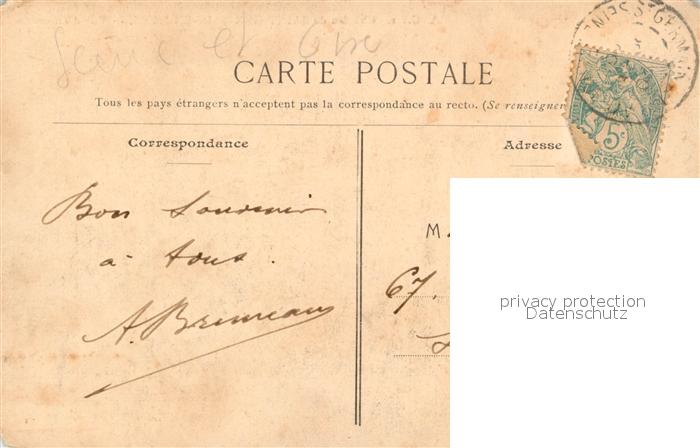 Seine et Oise
CARTE POSTALE
Tous les pays étrangers n'acceptent pas la correspondance au recto. (Se renseigner
Correspondance
Adresse
5c
POSTES
Bon souvenir
à tous.
M
67,
privacy protection
Datenschutz